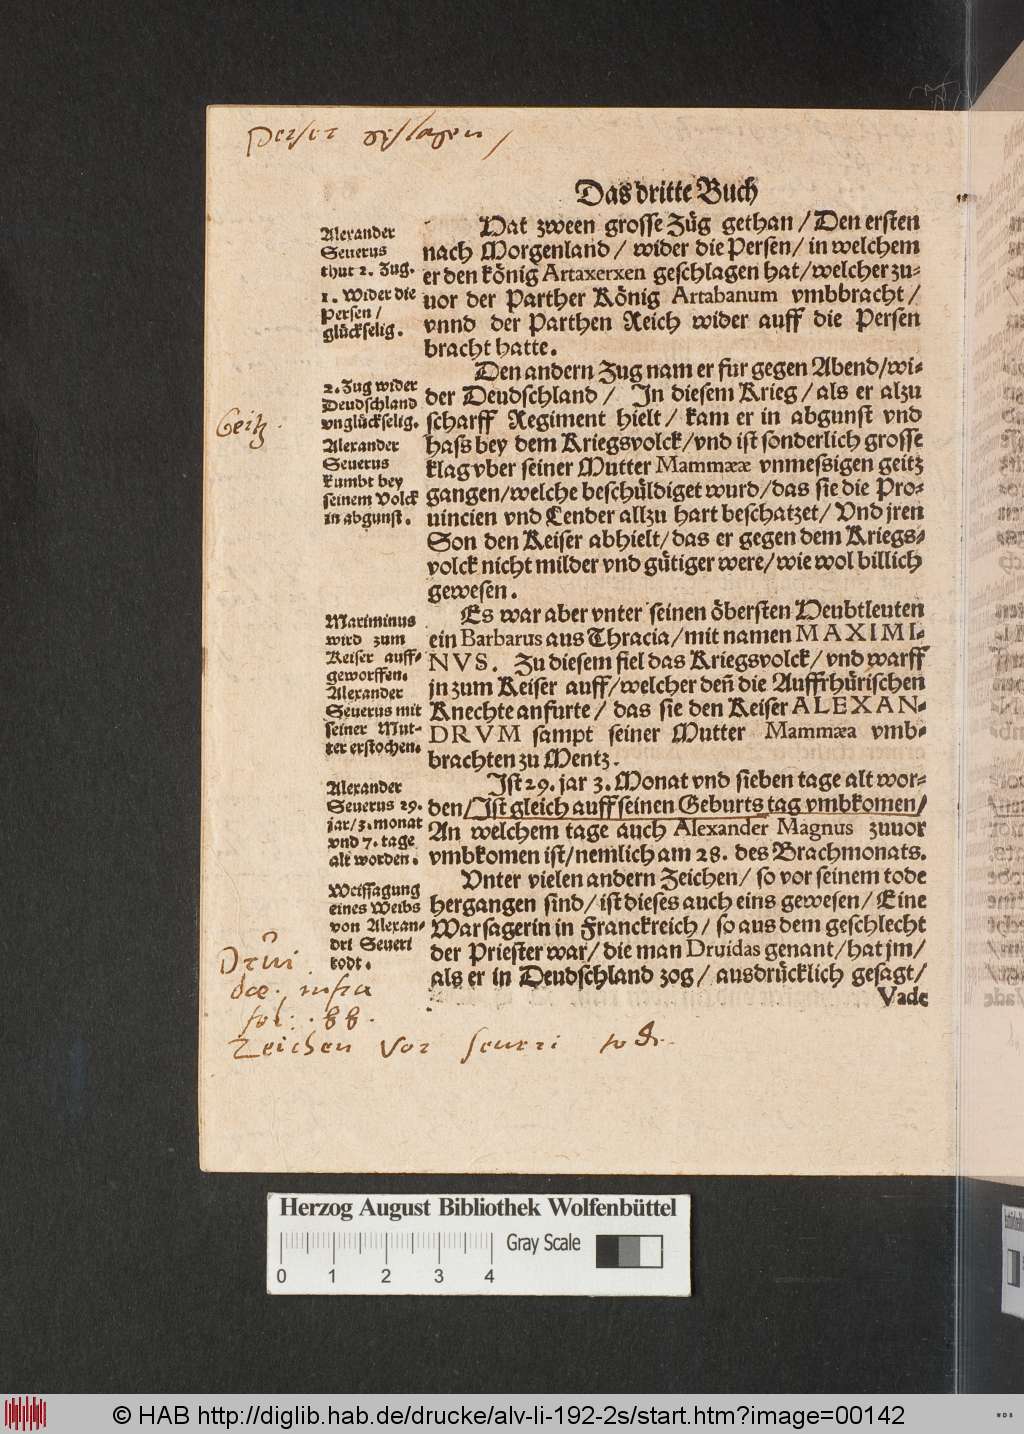 Perser geslagen /
Das dritte Buch
Hat zween grosse Züg gethan / Den ersten
nach Morgenland / wider die Persen / in welchem
er den König Artaxerxen geschlagen hat / welcher zu-
uor der Parther König Artabanum vmbbracht /
vnnd der Parthen Reich wider auff die Persen
bracht hatte.
Alexander
Seuerus
thut 2. Zug.
1. Wider die
Persen /
glückselig.
Den andern Zug nam er für gegen Abend / wi-
der Deudschland / In diesem Krieg / als er alzu
scharff Regiment hielt / kam er in abgunst vnd
hass bey dem Kriegsvolck / vnd ist sonderlich grosse
klag vber seiner Mutter Mammææ vnmessigen geitz
gangen / welche beschüldiget wurd / das sie die Pro-
uincien vnd Lender allzu hart beschatzet / Vnd jren
Son den Keiser abhielt / das er gegen dem Kriegs-
volck nicht milder vnd gütiger were / wie wol billich
gewesen.
2. Zug wider
Deudschland
vnglückselig.
Alexander
Seuerus
kumbt bey
seinem Volck
in abgunst.
Geitz.
Es war aber vnter seinen öbersten Heubtleuten
ein Barbarus aus Thracia / mit namen MAXIMI-
NVS. Zu diesem fiel das Kriegsvolck / vnd warff
jn zum Keiser auff / welcher deñ die Auffrhürischen
Knechte anfurte / das sie den Keiser ALEXAN-
DRVM sampt seiner Mutter Mammæa vmb-
brachten zu Mentz.
Maximinus
wird zum
Keiser auff-
geworffen.
Alexander
Seuerus mit
seiner Mut-
ter erstochen.
Ist 29. jar 3. Monat vnd sieben tage alt wor-
den / Ist gleich auff seinen Geburts tag vmbkomen /
An welchem tage auch Alexander Magnus zuuor
vmbkomen ist / nemlich am 28. des Brachmonats.
Alexander
Seuerus 29.
jar / 3. monat
vnd 7. tage
alt worden.
Vnter vielen andern Zeichen / so vor seinem tode
hergangen sind / ist dieses auch eins gewesen / Eine
Warsagerin in Franckreich / so aus dem geschlecht
der Priester war / die man Druidas genant / hat jm /
als er in Deudschland zog / ausdrücklich gesagt /
Vade
Weissagung
eines Weibs
von Alexan-
dri Seueri
todt.
Drui
dæ. infra
fol: .88.
Zeichen vor seueri tode.
Herzog August Bibliothek Wolfenbüttel
0 1 2 3 4
Gray Scale
© HAB http://diglib.hab.de/drucke/alv-li-192-2s/start.htm?image=00142